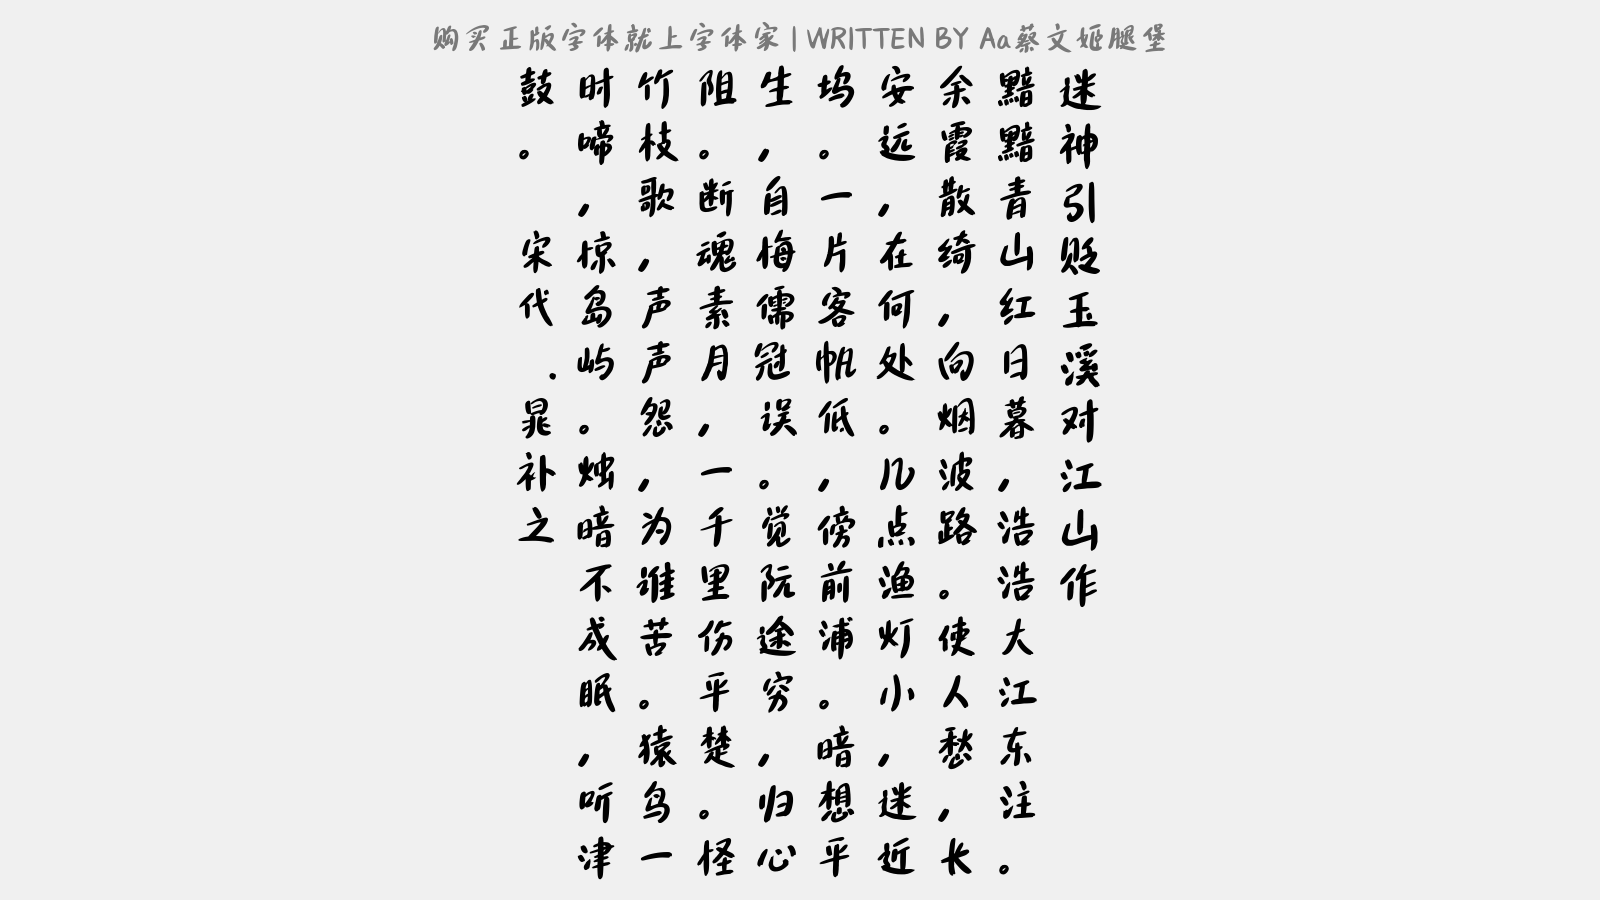 购买正版字体就上字体家 | WRITTEN BY Aa蔡文姬腿堡
迷神引贬玉溪对江山作
黯黯青山红日暮，浩浩大江东注。
余霞散绮，向烟波路。使人愁，长
安远，在何处。几点渔灯小，迷近
坞。一片客帆低，傍前浦。暗想平
生，自悔儒冠误。觉阮途穷，归心
阻。断魂素月，一千里伤平楚。怪
竹枝歌，声声怨，为谁苦。猿鸟一
时啼，惊岛屿。烛暗不成眠，听津
鼓。
宋代.晁补之